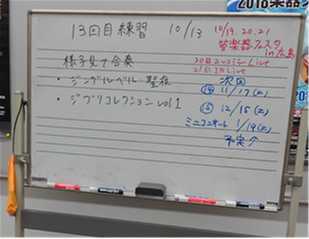 13回目練習 10/13
10/19 20.21
管楽器フェスタ
in 広島
様子見て合奏
・ジングルベル〜聖夜
・ジブリコレクション vol 1
次回
⑭ 11/17(土)
⑮ 12/15(土)
ミニコンサート 1/19(土)
予定
2018楽器フ